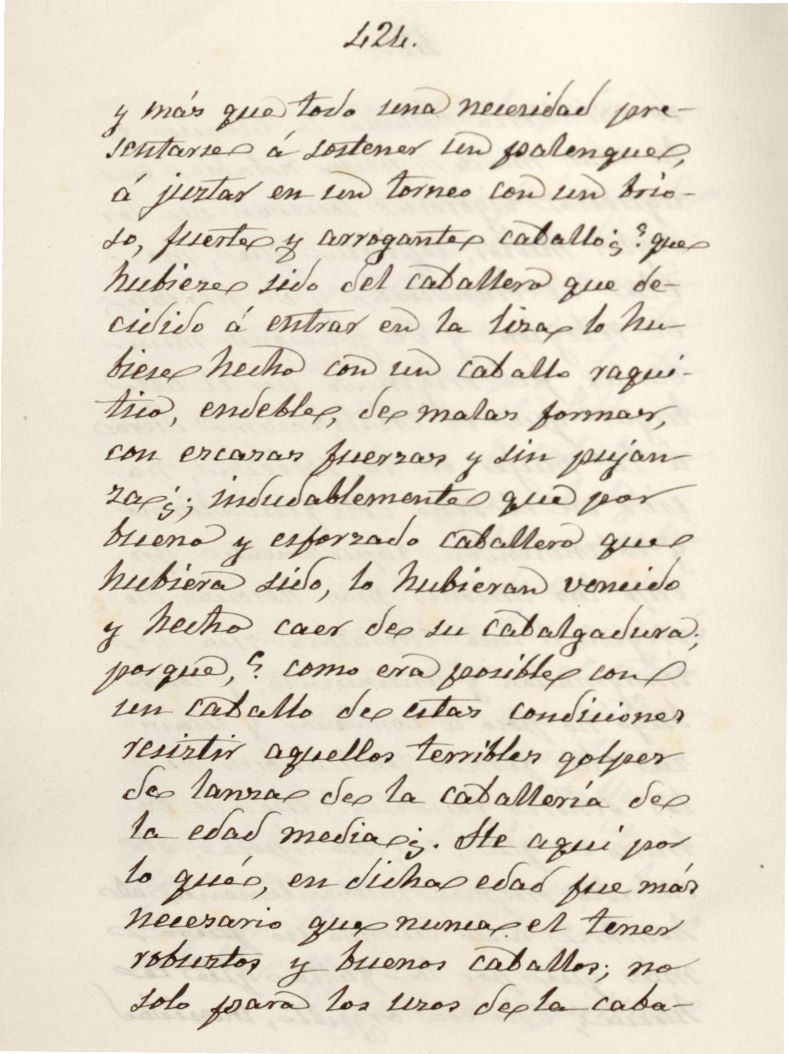 424.
y más que todo una necesidad pre-
sentarse á sostener un palenque,
á justar en un torneo con un brio-
so, fuerte y arrogante caballo; ¿? que
hubiese sido del caballero que de-
cidido á entrar en la liza lo hu-
biese hecho con un caballo raqui-
tico, endeble, de malas formas,
con escasas fuerzas y sin pujan
za¿; indudablemente que por
bueno y esforzado caballero que
hubiera sido, lo hubieran vencido
y hecho caer de su cabalgadura;
porque, ? como era posible con
un caballo de estas condiciones
resistir aquellos terribles golpes
de lanza de la caballería de
la edad media¿. He aquí por
lo qué, en dicha edad fue más
necesario que nunca el tener
robustos y buenos caballos; no
solo para los usos de la caba-